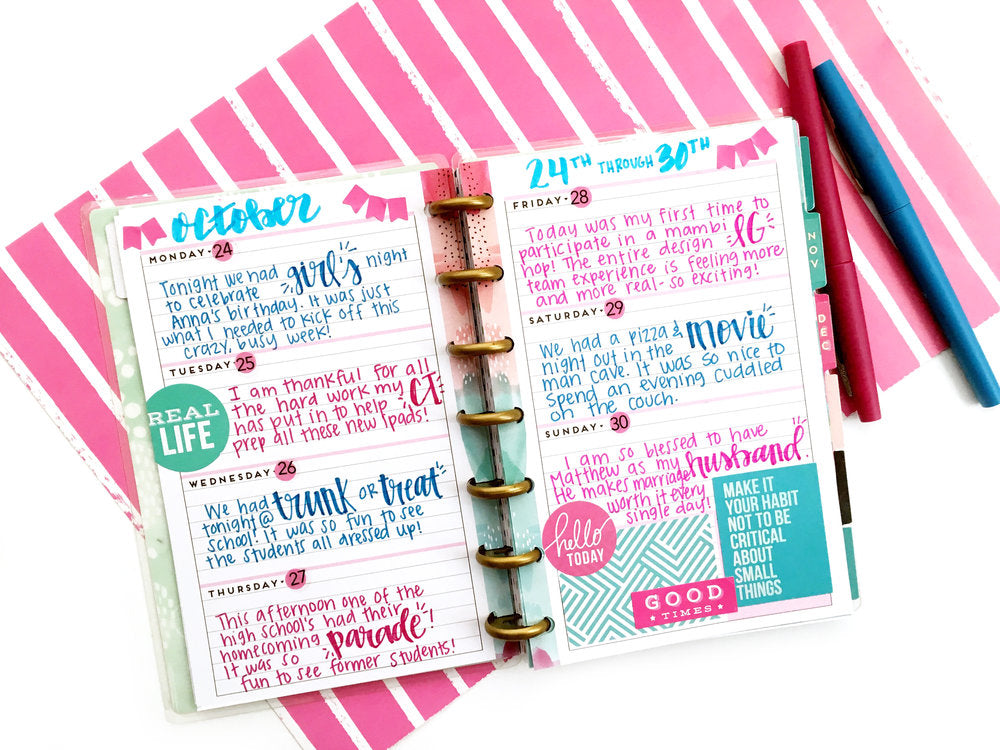 october
MONDAY • 24
Tonight we had girl's night
to celebrate
Anna's birthday. It was just
what I needed to kick off this
crazy, busy week!
TUESDAY • 25
I am thankful for all
the hard work my CT
has put in to help
prep all these new Ipads!
REAL
LIFE
WEDNESDAY • 26
We had trunk or treat
tonight @
school! It was so fun to see
the students all dressed up!
THURSDAY • 27
This afternoon one of the
high school's had their
homecoming parade!
It was so
fun to see former students!
24TH THROUGH 30TH
FRIDAY • 28
Today was my first time to
participate in a mambi IG
hop! The entire design
team experience is feeling more
and more real- so exciting!
SATURDAY • 29
We had a pizza & movie
night out in the
man cave. It was so nice to
spend an evening cuddled
on the couch.
SUNDAY • 30
I am so blessed to have
Matthew as my husband.
He makes marriage
worth it every
single day!
hello
TODAY
MAKE IT
YOUR HABIT
NOT TO BE
CRITICAL
ABOUT
SMALL
THINGS
GOOD
TIMES
NOV
DEC